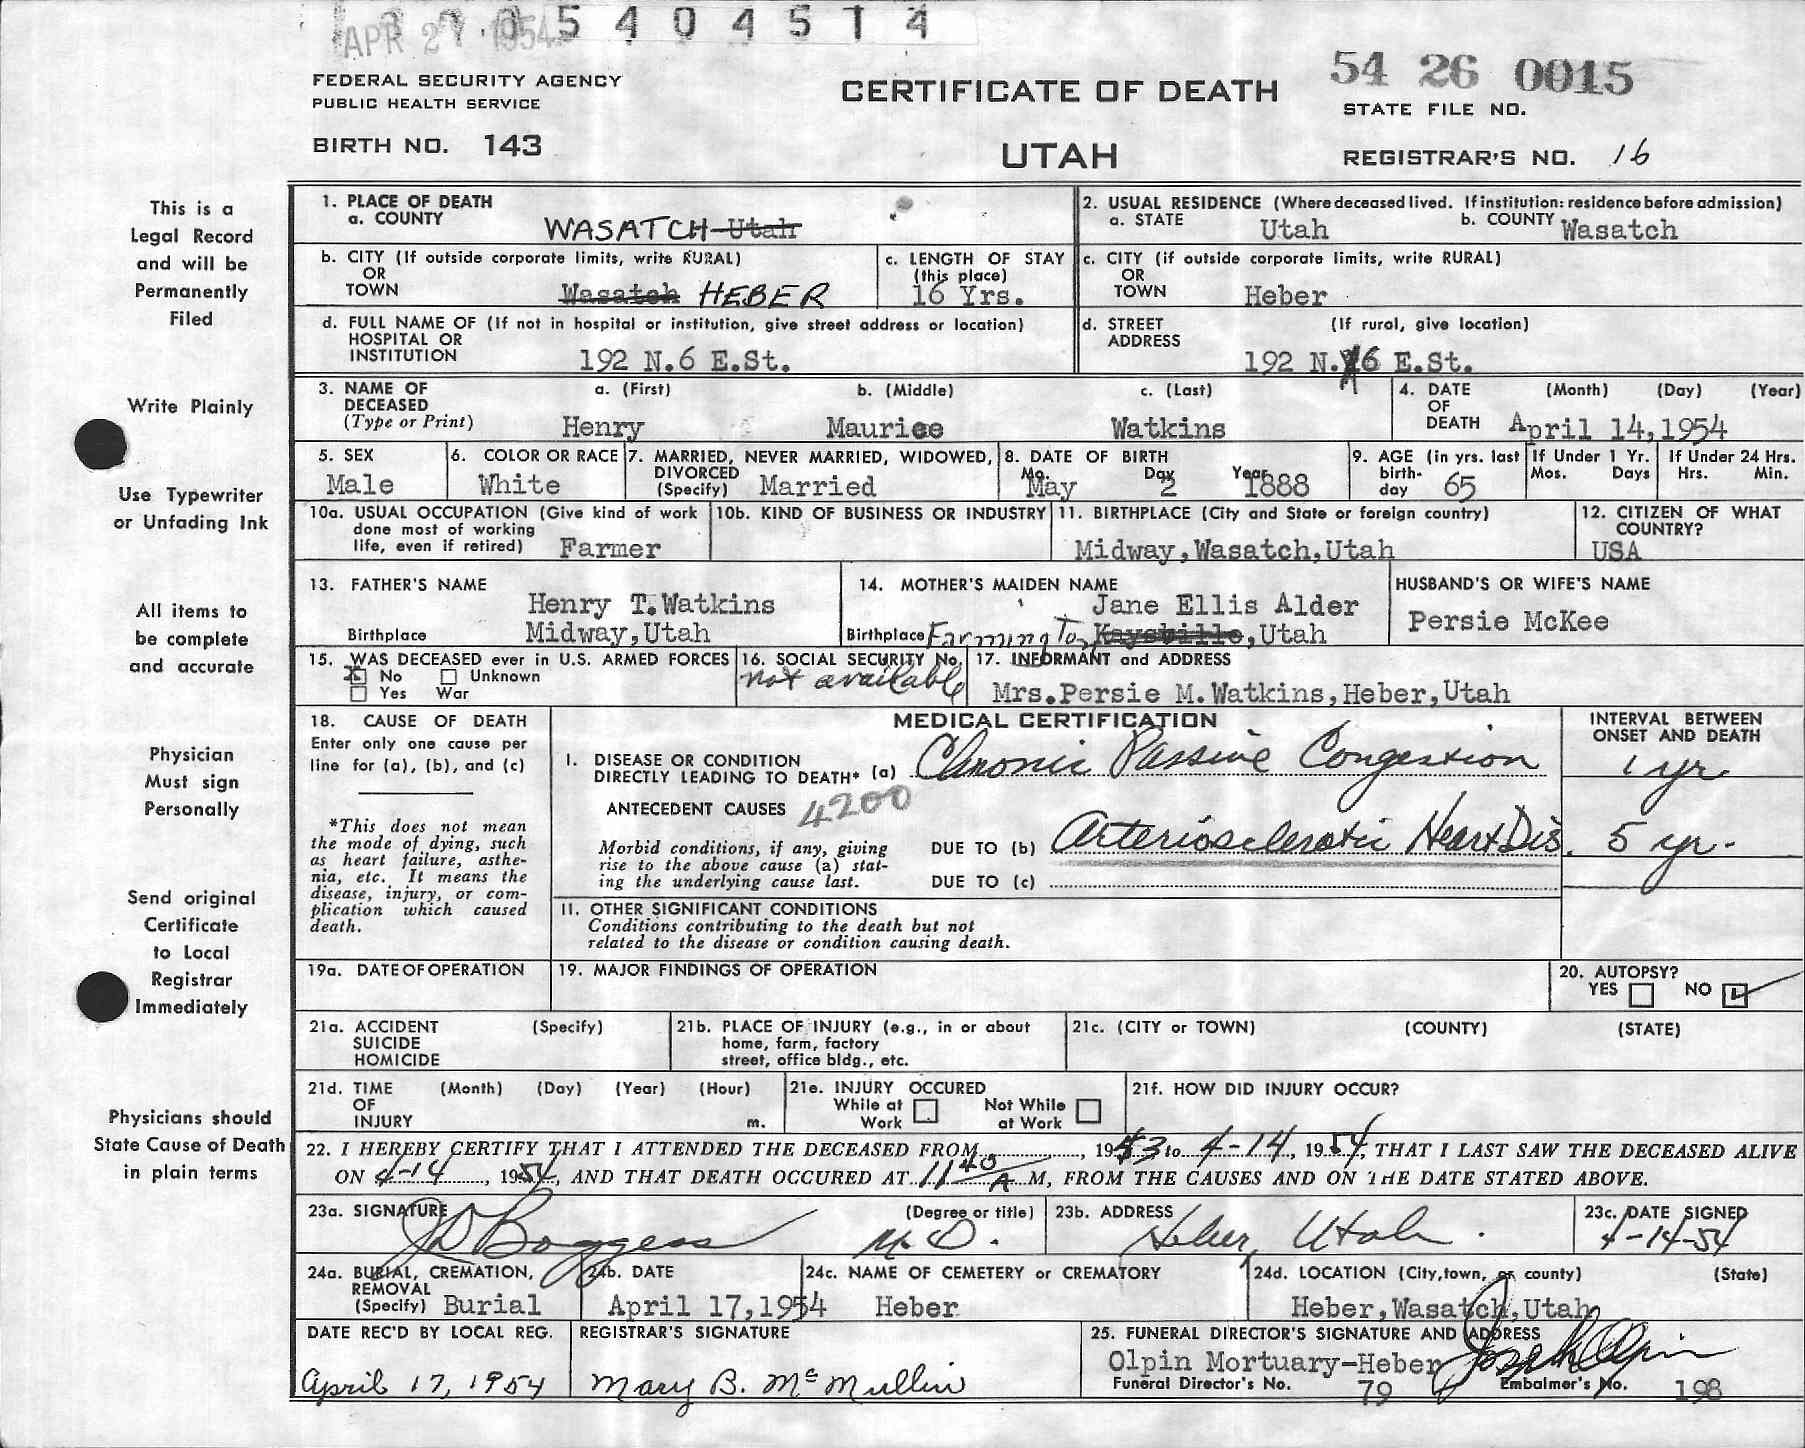 APR 27 1954
5 4 0 4 5 1 4
FEDERAL SECURITY AGENCY
PUBLIC HEALTH SERVICE
BIRTH NO. 143
CERTIFICATE OF DEATH
UTAH
54 26 0015
STATE FILE NO.
REGISTRAR'S NO. 16
This is a
Legal Record
and will be
Permanently
Filed
Write Plainly
Use Typewriter
or Unfading Ink
All items to
be complete
and accurate
Physician
Must sign
Personally
Send original
Certificate
to Local
Registrar
Immediately
Physicians should
State Cause of Death
in plain terms
1. PLACE OF DEATH
a. COUNTY WASATCH Utah
2. USUAL RESIDENCE (Where deceased lived. If institution: residence before admission)
a. STATE Utah b. COUNTY Wasatch
b. CITY (If outside corporate limits, write RURAL)
OR
TOWN Wasatch HEBER
c. LENGTH OF STAY
(this place)
16 Yrs.
c. CITY (if outside corporate limits, write RURAL)
OR
TOWN Heber
d. FULL NAME OF (If not in hospital or institution, give street address or location)
HOSPITAL OR
INSTITUTION 192 N.6 E.St.
d. STREET (If rural, give location)
ADDRESS
192 N. 6 E.St.
3. NAME OF
DECEASED
(Type or Print)
a. (First) b. (Middle) c. (Last)
Henry Maurice Watkins
4. DATE (Month) (Day) (Year)
OF
DEATH April 14,1954
5. SEX
Male
6. COLOR OR RACE
White
7. MARRIED, NEVER MARRIED, WIDOWED,
DIVORCED
(Specify) Married
8. DATE OF BIRTH
Mo. Day Year
May 2 1888
9. AGE (in yrs. last
birth-
day 65
If Under 1 Yr.
Mos. Days
If Under 24 Hrs.
Hrs. Min.
10a. USUAL OCCUPATION (Give kind of work
done most of working
life, even if retired) Farmer
10b. KIND OF BUSINESS OR INDUSTRY
11. BIRTHPLACE (City and State or foreign country)
Midway,Wasatch,Utah
12. CITIZEN OF WHAT
COUNTRY?
USA
13. FATHER'S NAME
Henry T.Watkins
Birthplace Midway,Utah
14. MOTHER'S MAIDEN NAME
Jane Ellis Alder
Birthplace Farmington Kaysville,Utah
HUSBAND'S OR WIFE'S NAME
Persie McKee
15. WAS DECEASED ever in U.S. ARMED FORCES
X No Unknown
Yes War
16. SOCIAL SECURITY No.
not available
17. INFORMANT and ADDRESS
Mrs.Persie M.Watkins,Heber,Utah
18. CAUSE OF DEATH
Enter only one cause per
line for (a), (b), and (c)
*This does not mean
the mode of dying, such
as heart failure, asthe-
nia, etc. It means the
disease, injury, or com-
plication which caused
death.
MEDICAL CERTIFICATION
INTERVAL BETWEEN
ONSET AND DEATH
I. DISEASE OR CONDITION
DIRECTLY LEADING TO DEATH* (a) Chronic Passive Congestion 1 yr.
ANTECEDENT CAUSES 4200
Morbid conditions, if any, giving
rise to the above cause (a) stat-
ing the underlying cause last.
DUE TO (b) Arteriosclerotic Heart Dis. 5 yr.
DUE TO (c)
II. OTHER SIGNIFICANT CONDITIONS
Conditions contributing to the death but not
related to the disease or condition causing death.
19a. DATE OF OPERATION
19. MAJOR FINDINGS OF OPERATION
20. AUTOPSY?
YES NO
21a. ACCIDENT (Specify)
SUICIDE
HOMICIDE
21b. PLACE OF INJURY (e.g., in or about
home, farm, factory
street, office bldg., etc.
21c. (CITY or TOWN) (COUNTY) (STATE)
21d. TIME (Month) (Day) (Year) (Hour)
OF
INJURY m.
21e. INJURY OCCURED
While at Not While
Work at Work
21f. HOW DID INJURY OCCUR?
22. I HEREBY CERTIFY THAT I ATTENDED THE DECEASED FROM, 1953 to 4-14, 1954, THAT I LAST SAW THE DECEASED ALIVE
ON 4-14, 1954, AND THAT DEATH OCCURED AT 11 40 A M, FROM THE CAUSES AND ON THE DATE STATED ABOVE.
23a. SIGNATURE (Degree or title)
JD Boggess M.D.
23b. ADDRESS
Heber, Utah.
23c. DATE SIGNED
4-14-54
24a. BURIAL, CREMATION,
REMOVAL
(Specify) Burial
24b. DATE
April 17,1954
24c. NAME OF CEMETERY or CREMATORY
Heber
24d. LOCATION (City,town, or county) (State)
Heber,Wasatch,Utah
DATE REC'D BY LOCAL REG.
April 17, 1954
REGISTRAR'S SIGNATURE
Mary B. McMullin
25. FUNERAL DIRECTOR'S SIGNATURE AND ADDRESS
Olpin Mortuary-Heber Joseph Olpin
Funeral Director's No. 79 Embalmer's No. 198